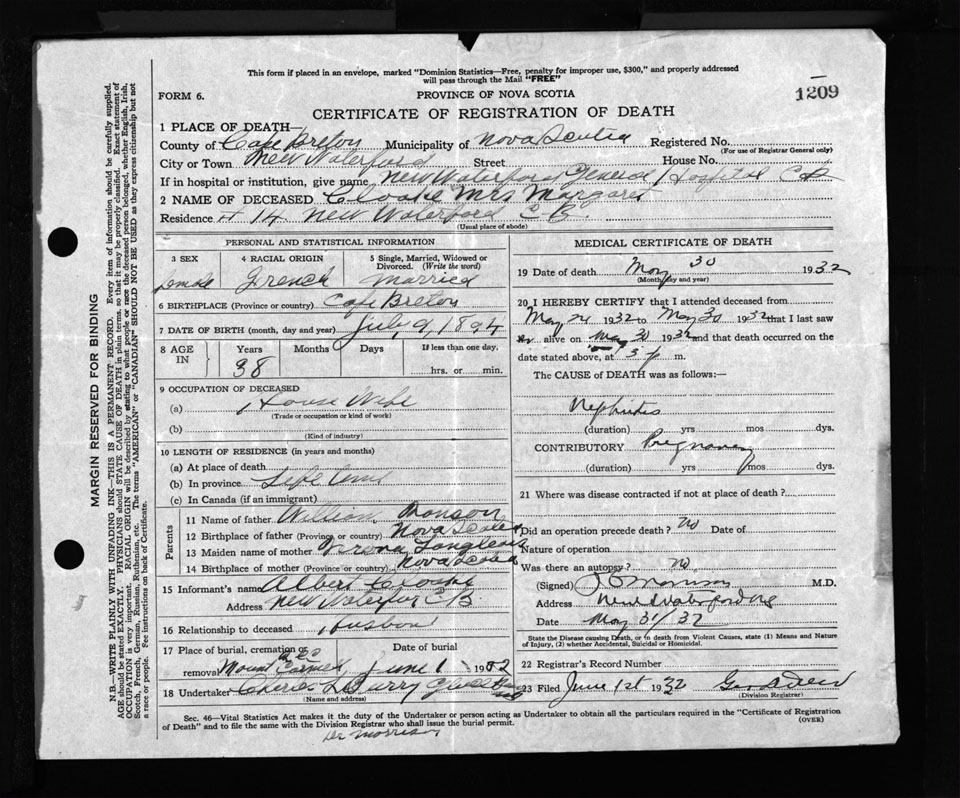 This form if placed in an envelope, marked "Dominion Statistics—Free, penalty for improper use, $300," and properly addressed
will pass through the Mail "FREE"
FORM 6.
PROVINCE OF NOVA SCOTIA
1209
CERTIFICATE OF REGISTRATION OF DEATH
1 PLACE OF DEATH—
County of Cape Breton Municipality of Nova Scotia Registered No.
(For use of Registrar General only)
City or Town New Waterford Street House No.
If in hospital or institution, give name New Waterford General Hospital C B
2 NAME OF DECEASED Mrs Margaret
Residence # 14 New Waterford C B.
(Usual place of abode)
PERSONAL AND STATISTICAL INFORMATION
3 SEX
4 RACIAL ORIGIN
5 Single, Married, Widowed or
Divorced. (Write the word)
Female French Married
6 BIRTHPLACE (Province or country) Cape Breton
7 DATE OF BIRTH (month, day and year) July 9, 1894
8 AGE IN
Years Months Days If less than one day,
38 hrs. or min.
9 OCCUPATION OF DECEASED
(a) House Wife
(Trade or occupation or kind of work)
(b)
(Kind of industry)
10 LENGTH OF RESIDENCE (in years and months)
(a) At place of death
(b) In province Life time
(c) In Canada (if an immigrant)
Parents
11 Name of father William
12 Birthplace of father (Province or country) Nova Scotia
13 Maiden name of mother
14 Birthplace of mother (Province or country) Nova Scotia
15 Informant's name Albert
Address New Waterford C B.
16 Relationship to deceased Husband
17 Place of burial, cremation or
removal Mount Carmel
Date of burial
June 1 1932
18 Undertaker Curry
(Name and address)
MEDICAL CERTIFICATE OF DEATH
19 Date of death May 30 1932
(Month, day and year)
20 I HEREBY CERTIFY that I attended deceased from
May 24 1932 to May 30 1932 that I last saw
her alive on May 30 1932 and that death occurred on the
date stated above, at m.
The CAUSE of DEATH was as follows:—
Nephritis
(duration) yrs mos dys.
CONTRIBUTORY Pregnancy
(duration) yrs mos dys.
21 Where was disease contracted if not at place of death?
Did an operation precede death? No Date of
Nature of operation
Was there an autopsy? no
(Signed) M.D.
Address New Waterford NS
Date May 31/32
State the Disease causing Death, or in death from Violent Causes, state (1) Means and Nature
of Injury, (2) whether Accidental, Suicidal or Homicidal.
22 Registrar's Record Number
23 Filed June 1st 1932
(Division Registrar)
Sec. 46—Vital Statistics Act makes it the duty of the Undertaker or person acting as Undertaker to obtain all the particulars required in the "Certificate of Registration
of Death" and to file the same with the Division Registrar who shall issue the burial permit.
(OVER)
Dr Morrison
MARGIN RESERVED FOR BINDING
N.B.—WRITE PLAINLY WITH UNFADING INK—THIS IS A PERMANENT RECORD. Every item of information should be carefully supplied.
AGE should be stated EXACTLY. PHYSICIANS should STATE CAUSE OF DEATH in plain terms, so that it may be properly classified. Exact statement of
OCCUPATION is very important. RACIAL ORIGIN will be described by stating to what people or race the deceased person belonged, whether English, Irish,
Scotch, French, German, Russian, Ruthenian, etc. The terms "AMERICAN" or "CANADIAN" SHOULD NOT BE USED as they express citizenship but not
a race or people. See instructions on back of Certificate.